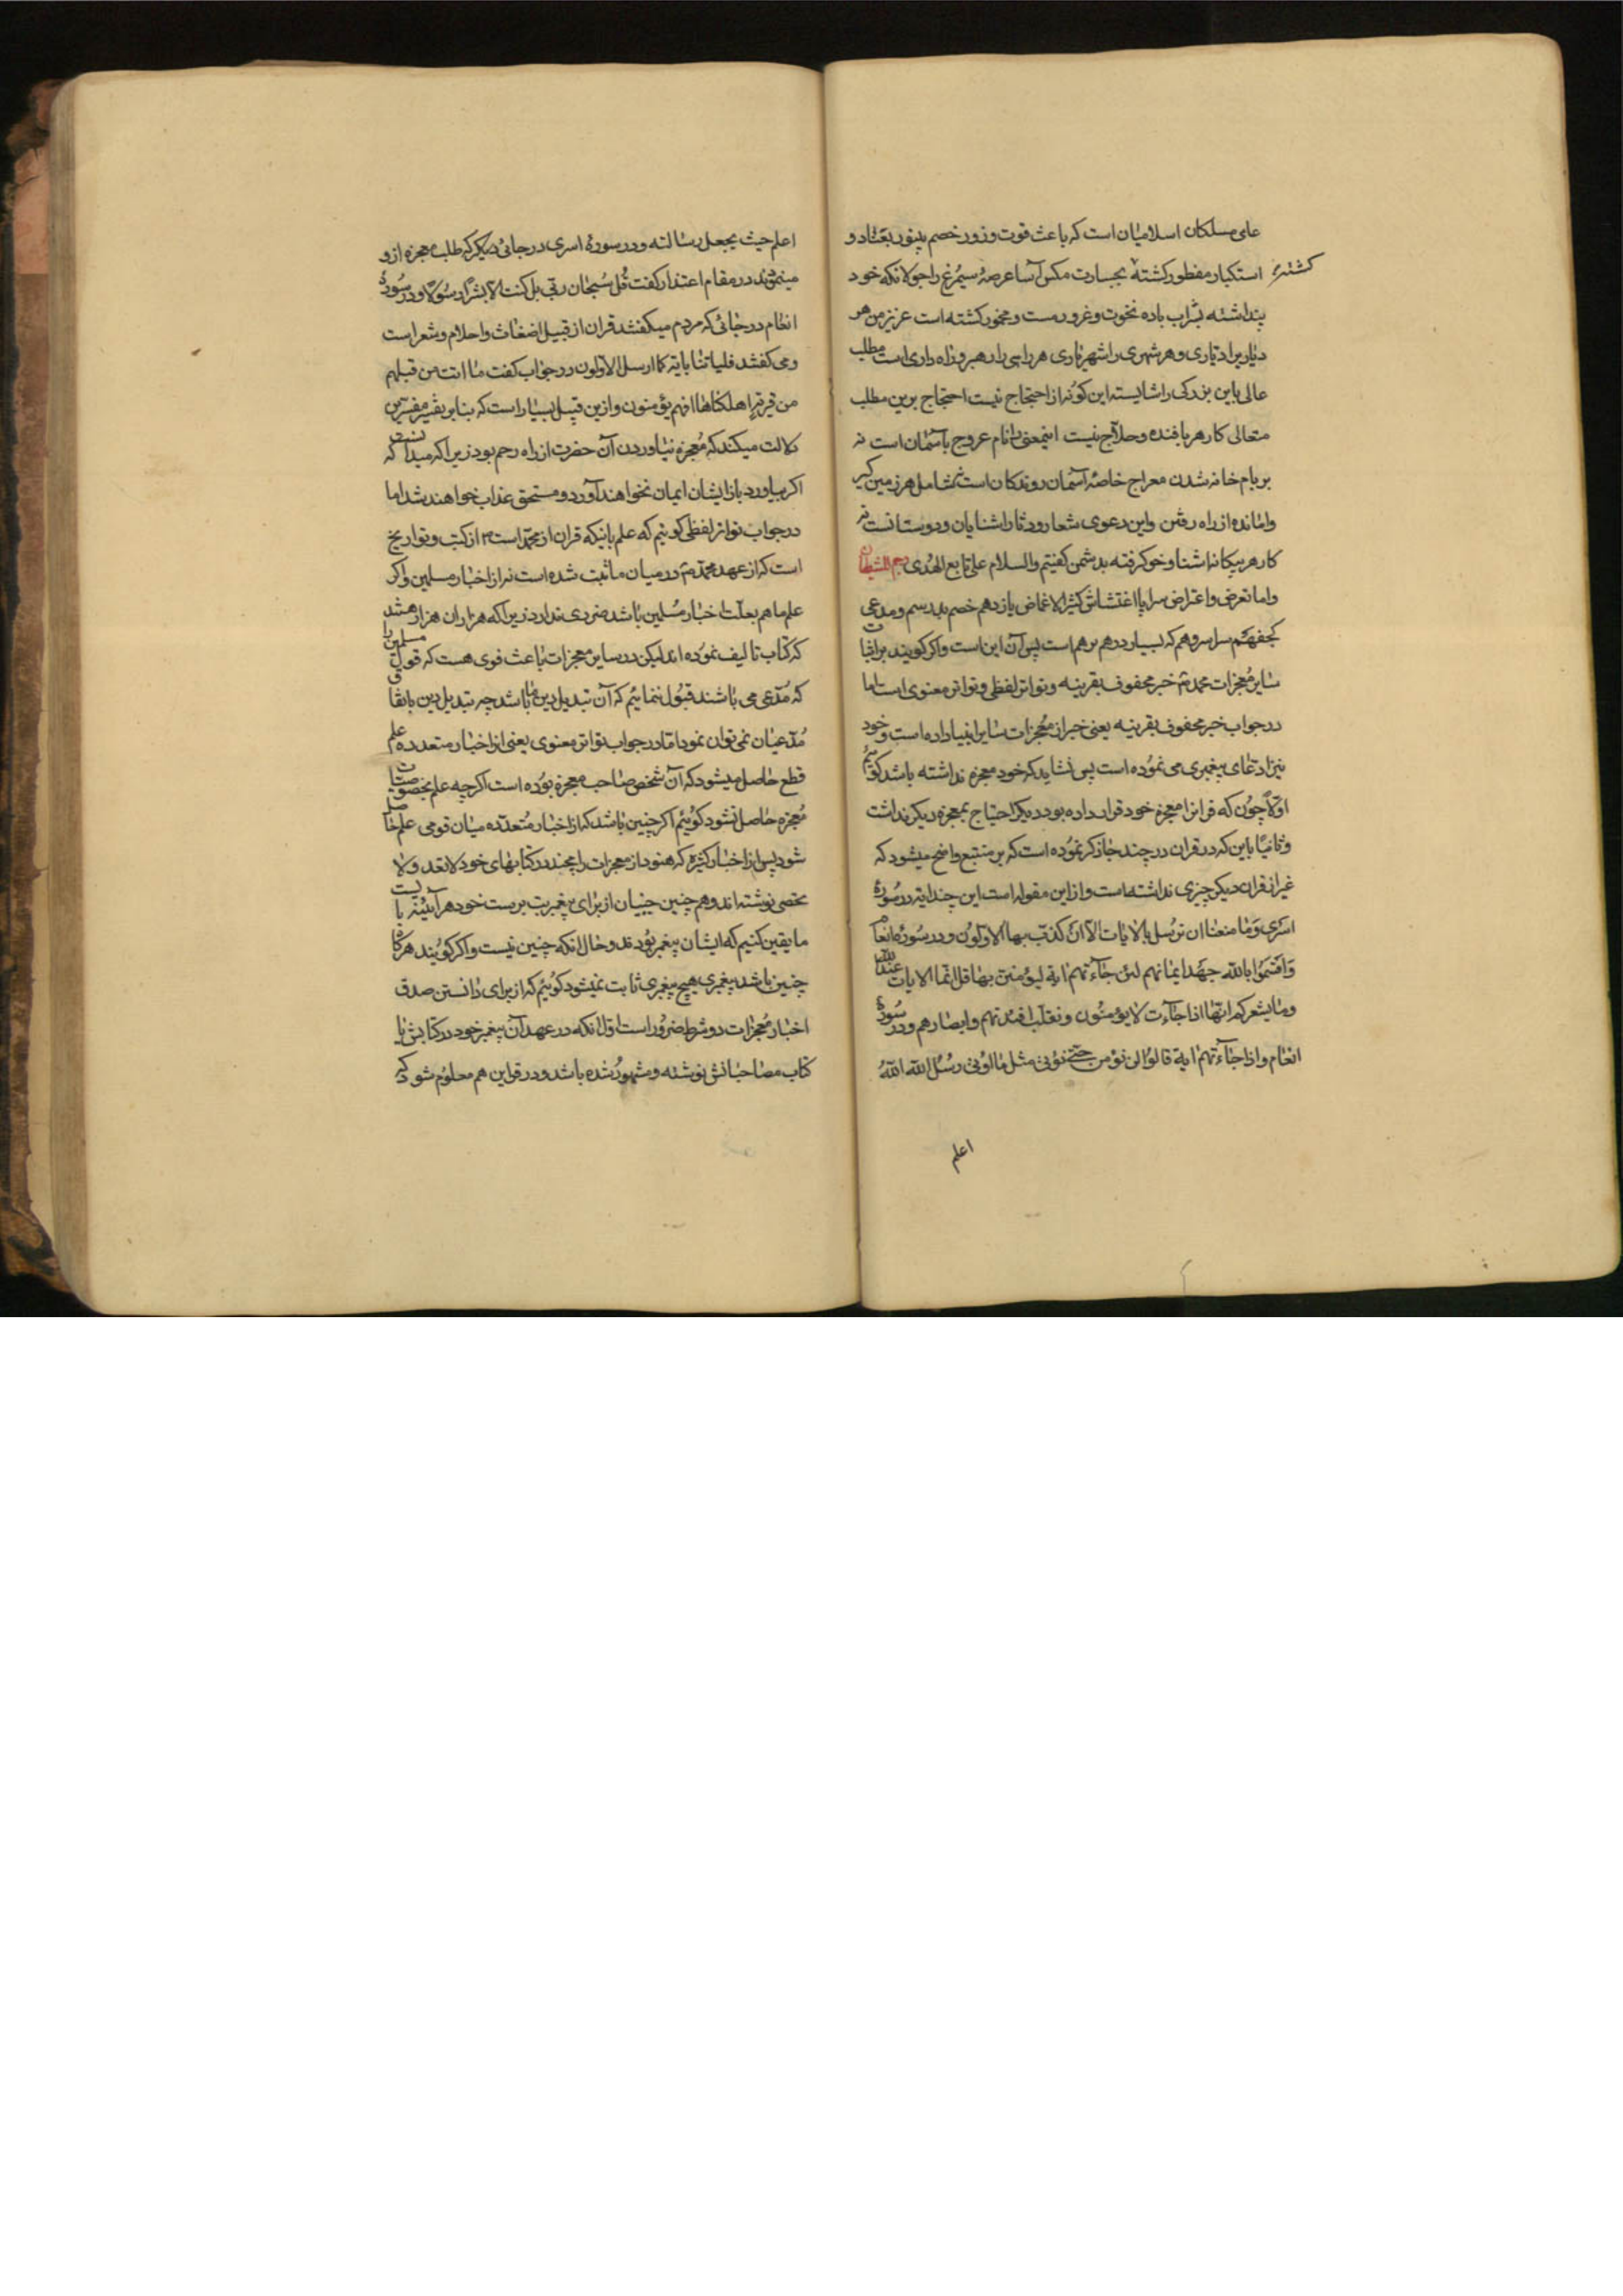 علی مسلکان اسلامیان است که باعث قوت و زور خصم بعناد و
استکبار مفطور کشته بجسارت مکس آسا عرصهٔ سیمرغ را جولانکه خود
کشته
پنداشته بشراب باده نخوت و غرور مست و مخمور کشته است عزیز من هر
دیار برا دیاری و هر شهری را شهریاری هر راهی را رهبر و راه داری است مطلب
عالی باین بزرکی را شایسته این کونه از احتجاج نیست احتجاج برین مطلب
متعالی کار هر بافنده و حلاج نیست اینمعنی را نام عروج باسمان است نه
بر بام خانه شدن معراج خاصهٔ آسمان روندکان است نه شامل هر زمین کیر
وامانده از راه رفتن و این دعوی شعار و دثار اشنایان و دوستانست نه
کار هر بیکانه اشنا و خو کرفته بدشمن کفتیم والسلام علی تابع الهدی رجم الشیطان
و اما تعرض و اعتراض سراپا اغتشاش کثیر الاغماض یازدهم خصم بد رسم و مدعی
کجفهم سراسر وهم که بسیار درهم برهم است پس آن این است و اکر کویند بر اثبات
سایر معجزات محمد ص خبر محفوف بقرینه و تواتر لفظی و تواتر معنوی است اما
در جواب خبر محفوف بقرینه یعنی خبر از معجزات سایر انبیا داده است و خود
نیز ادعای پیغمبری می نموده است پس نشاید که خود معجزه نداشته باشد کوئیم
اولا چون که قرانرا معجزه خود قرار داده بود دیکر احتیاج بمعجزه دیکر نداشت
و ثانیا باین که در قران در چند جا ذکر نموده است که بر متتبع واضح میشود که
غیر از قران دیکر چیزی نداشته است و از این مقوله است این چند ایه در سورهٔ
اسری وَمٰا منعنا ان نرسل بالایات الا ان کذب بها الاولون و در سوره انعام
وَاقسموا بالله جهد ایمانهم لئن جآءتهم ایة لیؤمنن بها قل انما الایات عند الله
وما یشعرکم انها اذا جاءت لا یؤمنون ونقلب افئدتهم وابصارهم و در سورهٔ
انعام واذا جاءتهم ایة قالوا لن نؤمن حتی نؤتی مثل ما اوتی رسل الله الله
اعلم
اعلم حیث یجعل رسالته و در سورهٔ اسری در جائی دیکر که طلب معجزه از و
مینمودند در مقام اعتذار کفت قل سُبحان ربی بل کنت الا بشرا رسولا و در سورهٔ
انعام در جائی که مردم میکفتند قران از قبیل اضغاث و احلام و شعر است
و می کفتند فلیاتنا بایة کما ارسل الاولون در جواب کفت ما امنت من قبلهم
من قریة اهلکناها افهم یؤمنون و ازین قبیل بسیار است که بنابر تفسیر مفسرین
دلالت میکند که معجزه نیاوردن آن حضرت از راه رحم بود زیرا که میدانست که
اکر بیاورد باز ایشان ایمان نخواهند آورد و مستحق عذاب خواهند شد اما
در جواب تواتر لفظی کوئیم که علم باینکه قران از محمد است ۳ از کتب و تواریخ
است که از عهد محمد ص در میان ما ثبت شده است نه از اخبار مسلمین و اکر
علم ما هم بعلت اخبار مسلمین باشد ضرری ندارد زیرا که هزاران هزار هستند
که کتاب تالیف نموده اند لیکن در سایر معجزات باعث قوی هست که قول مسلمین را
که مدعی می باشند قبول ننمائیم که آن تبدیل دین ما باشد چه تبدیل دین باتفاق
مدعیان نمی توان نمود اما در جواب تواتر معنوی یعنی از اخبار متعدده علم
قطع حاصل میشود که آن شخص صاحب معجزه بوده است اکرچه علم بخصوصیات
معجزه حاصل نشود کوئیم اکر چنین باشد که از اخبار متعدده میان قومی علم حاصل
شود پس از اخبار کثیره که هنود از معجزات رامچند در کتابهای خود لا تعد و لا
تحصی نوشته اند و هم چنین چینیان از برای پیغمبر بت پرست خود هر آئینه بایست
ما یقین کنیم که ایشان پیغمبر بودند و حال انکه چنین نیست و اکر کویند هرکاه
چنین باشد پیغمبری هیچ پیغمبری ثابت نمیشود کوئیم که از برای دانستن صدق
اخبار معجزات دو شرط ضرور است اول انکه در عهد آن پیغمبر خود در کتابش یا
کتاب مصاحبانش نوشته و مشهور شده باشد و در قراین هم معلوم شود که